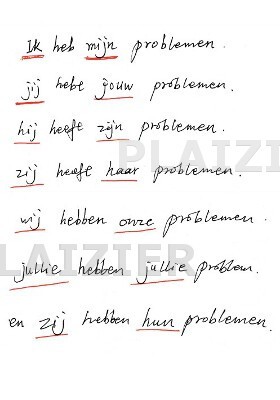 Ik heb mijn problemen.
jij hebt jouw problemen.
hij heeft zijn problemen.
PLAIZIER
zij heeft haar problemen.
wij hebben onze problemen.
PLAIZIER
jullie hebben jullie problem.
en zij hebben hun problemen.